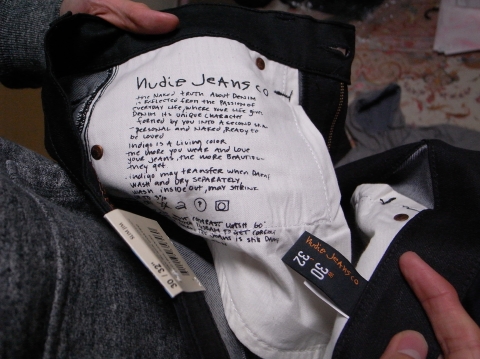 nudie Jeans co
the naked truth about denim
is reflected from the passion of
everyday life, where your life gives
denim its unique character
formed by you into a second skin
personal and naked, ready to
be loved
indigo is a living color
the more you wear and love
your jeans, the more beautiful
they get
indigo may transfer when damp
wash and dry separately
wash inside out, may shrink
wash 60°
to get
jeans is still damp
nudie Jeans co
30"
32
30 32"